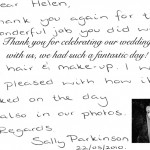 ear Helen,
hank you again for t
onderful job you did w
Thank you for celebrating our wedding
with us, we had such a fantastic day!
hair & make-up. I w
pleased with how it
ked on the day
also in our photos.
Regards
Sally Parkinson
22/05/2010.